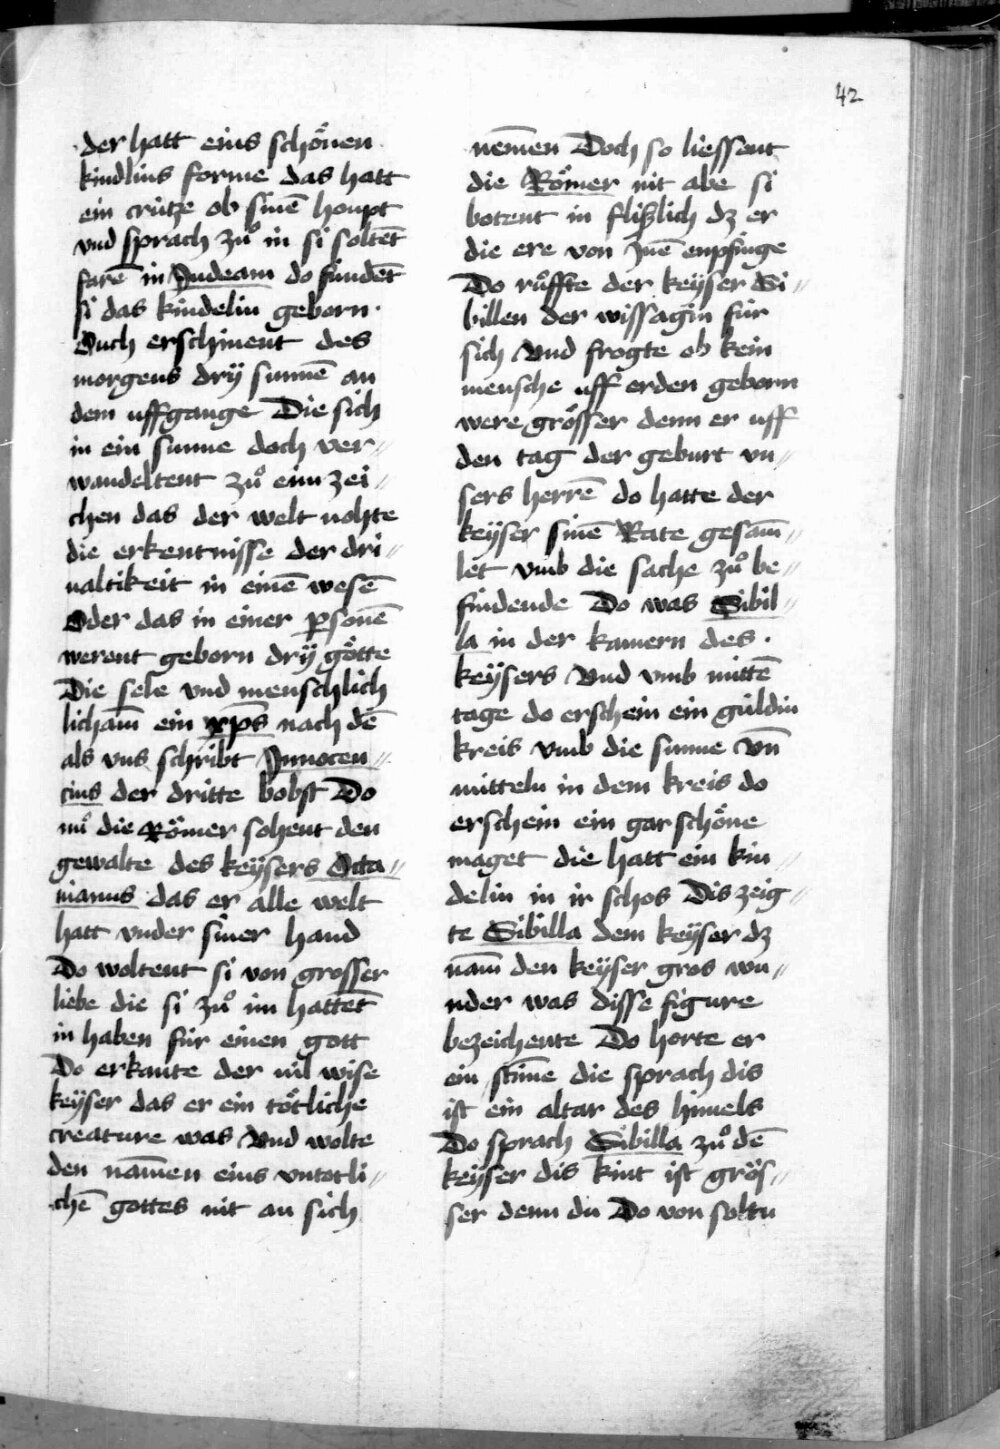 42
der hatt eins schoͤnen
kindlins forme das hatt
ein crütze ob sinē houpt
vnd sprach zuͦ in si soltēt
farē in Judeam do fundēt
si das kindelin geborn.
Ouch erschinent des
morgens drÿ sunnē an
dem uffgange Die sich
in ein sunne doch ver〃
wandeltent zuͦ eim zei〃
chen das der welt nohte
die erkentnisse der dri〃
ualtikeit in einē wesē
Oder das in einer psonē
werent geborn drÿ goͤtte
Die sele vnd menschlich
lichām ein xp̄s nach dē
als vns schribt Jnnocen〃
cius der dritte bobst Do
nuͦ die Roͤmer sohent den
gewalte des keÿsers Octa〃
uianus das er alle welt
hatt vnder siner hand
Do woltent si von grosser
liebe die si zuͦ im hattēt
in haben für einen gott
Do erkante der vil wise
keÿser das er ein toͤtliche
creature was Vnd wolte
den nāmen eins vntotli〃
chē gottes nit an sich
nēmen Doch so liessent
die Roͤmer nit abe si
botent in fliszlich dz er
die ere von Jnē enpfinge
Do ruͤffte der keÿser Si〃
billen der wissagin für
sich Vnd frogte ob kein
mensche uff erden geborn
were groͤsser denn er uff
den tag der geburt vn〃
sers herrē do hatte der
keÿser sinē Rate gesām〃
let vmb die sache zuͦ be〃
findende Do was Sibil〃
la in der kamern des.
keÿsers Vnd vmb mittē
tage do erschein ein guldin
kreis vmb die sunne Vn̄
mitteln in dem kreis do
erschein ein gar schoͤne
maget die hatt ein kin〃
delin in ir schos Dis zeig〃
te Sibilla dem keÿser dz
nām den keÿser gros wu〃
nder was disse figure
bezeichente Do horte er
ein stīme die sprach dis
ist ein altar des himels
Do sprach Sibilla zuͦ dē
keÿser dis kint ist groͤs〃
ser denn du Do von soltu